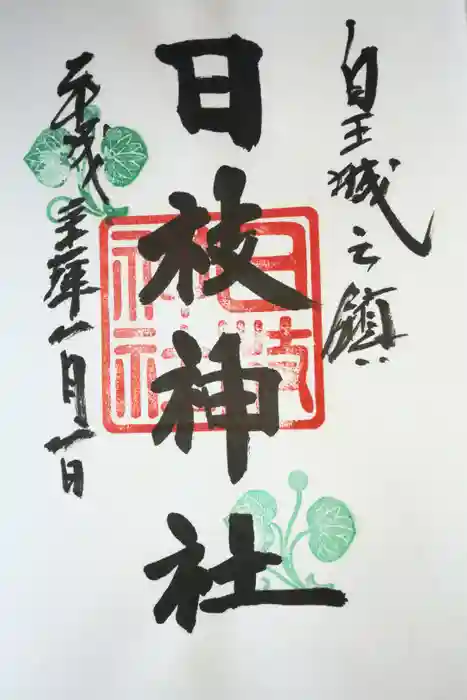 皇城之鎮
日枝神社
平成三十年一月一日
日枝
神社